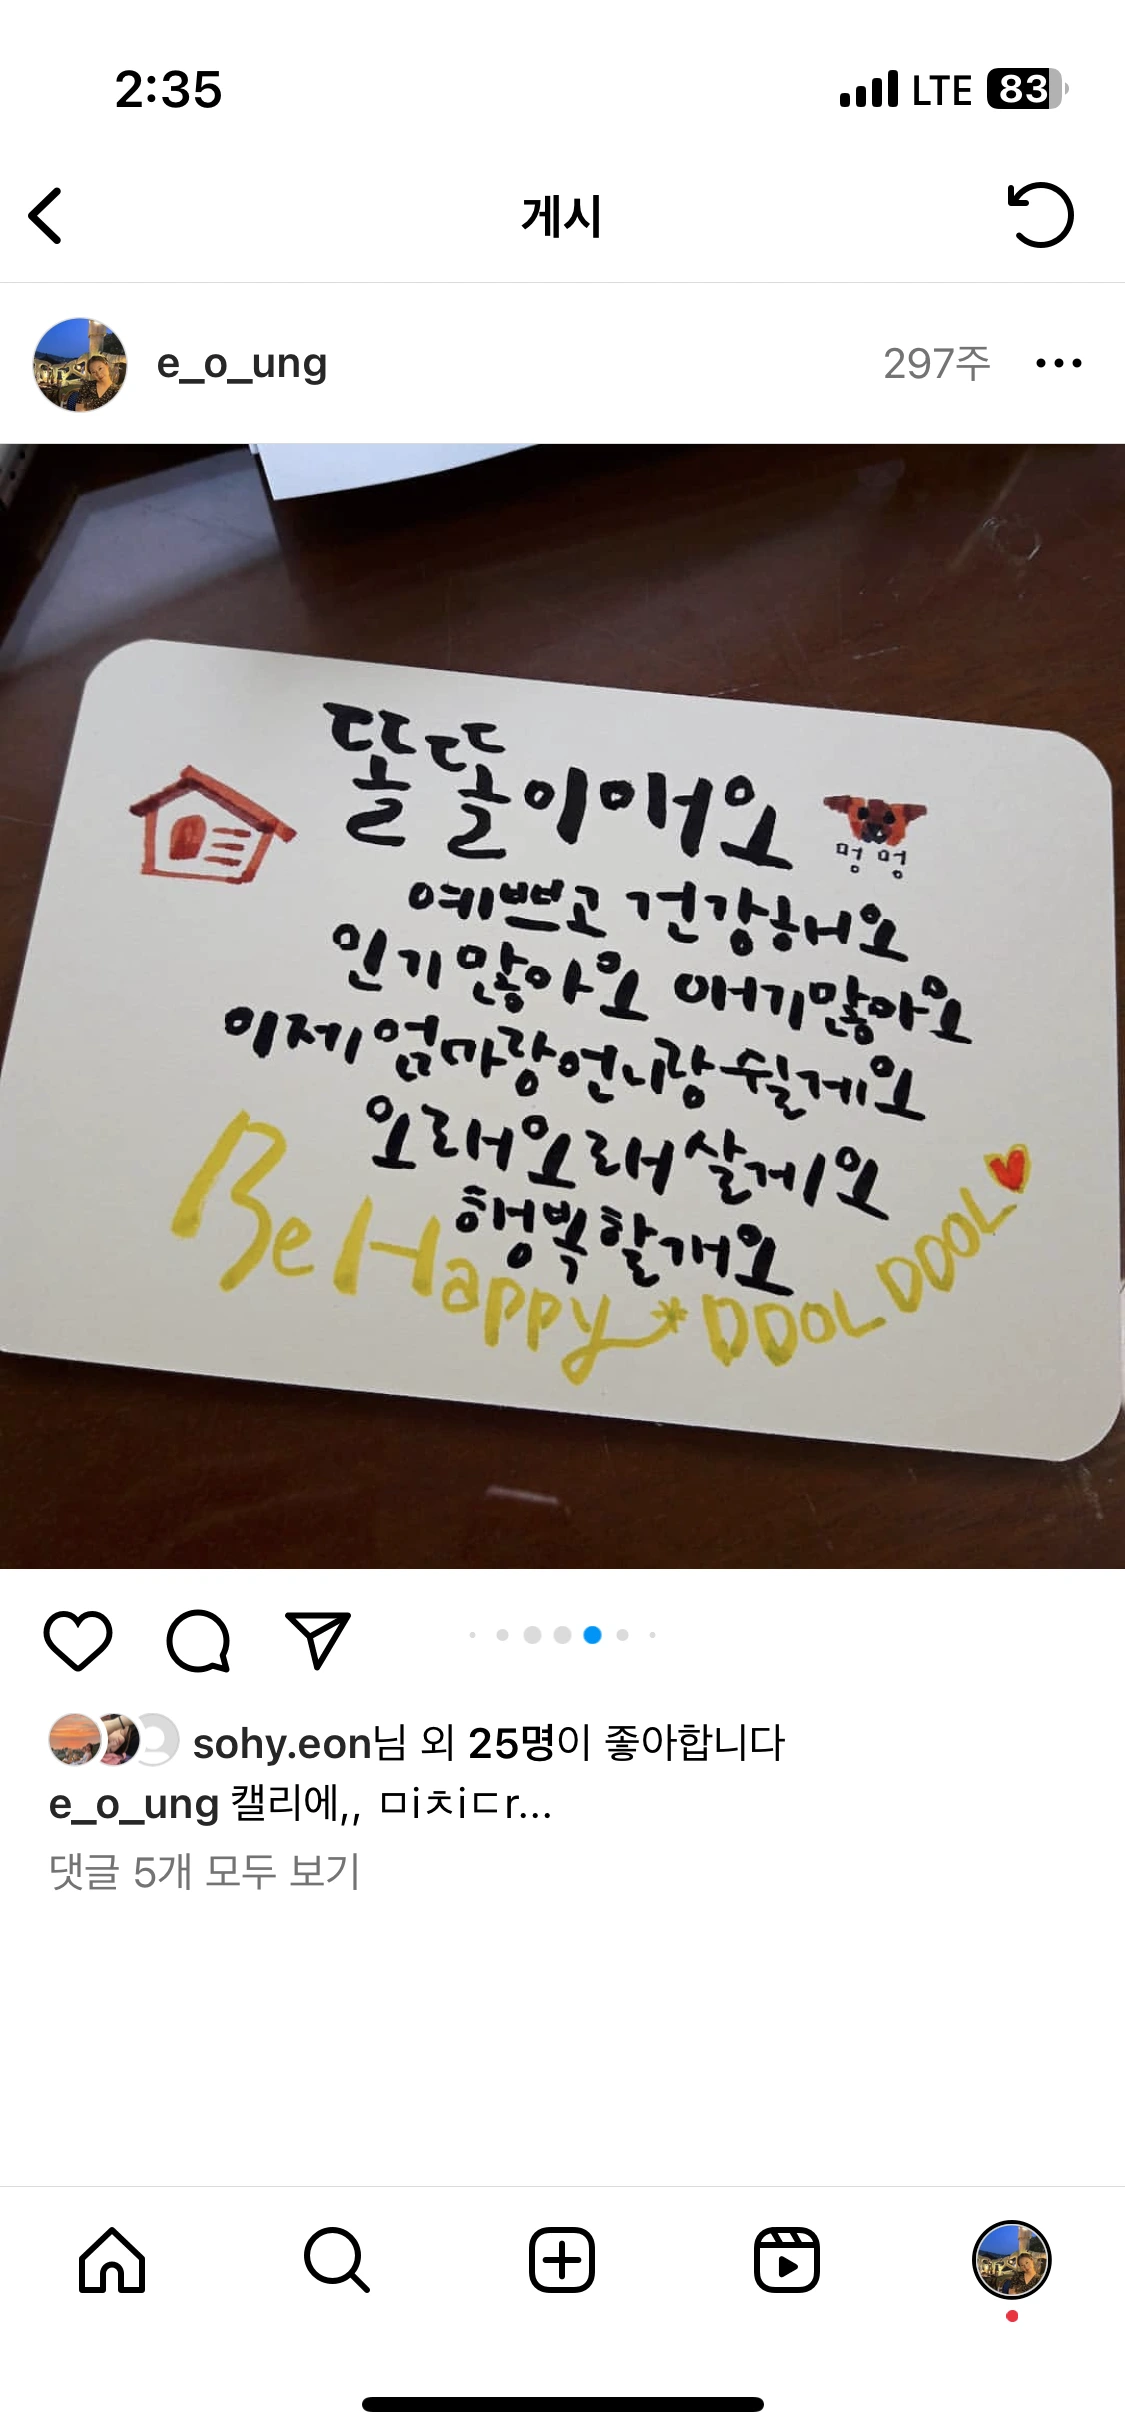 2:35 LTE 83
게시
e_o_ung 297주
똘똘이애오
멍 멍
예쁘고 건강해요
인기많아요 애기많아요
이제엄마랑언니랑쉴게요
오래오래살게요
행복할개요
Be Happy DDOL DDOL
sohy.eon님 외 25명이 좋아합니다
e_o_ung 캘리에,, ㅁiㅊiㄷr...
댓글 5개 모두 보기